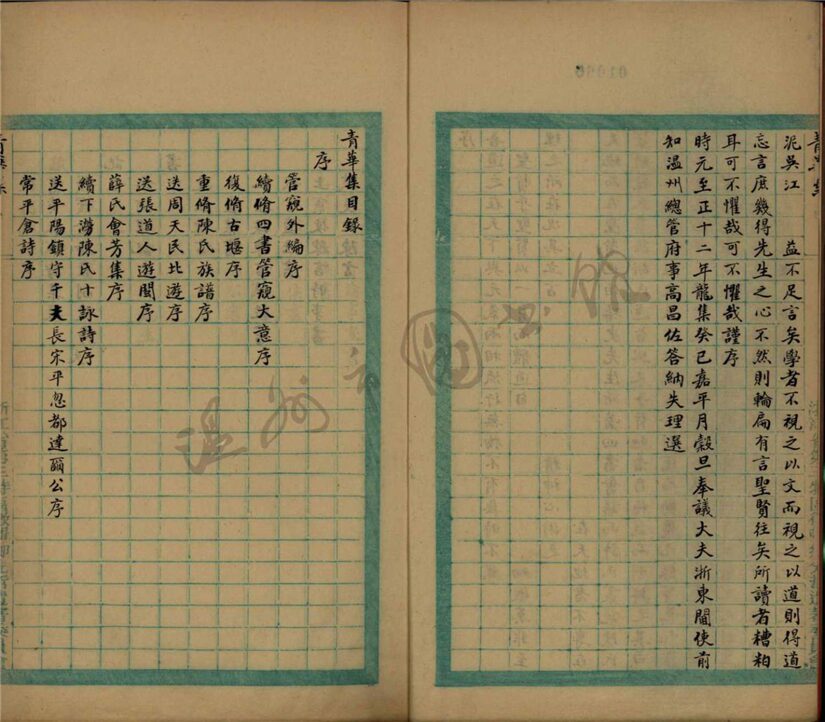 泥吳江　益不足言矣學者不視之以文而視之以道則得道
忘言庶幾得先生之心不然則輪扁有言聖賢往矣所讀者糟粕
耳可不懼哉可不懼哉謹序
時元至正十二年龍集癸巳嘉平月穀旦奉議大夫浙東閫使前
知溫州總管府事高昌佐答納失理選
青華集目錄
序
管窺外編序
續脩四書管窺大意序
復脩古堰序
重脩陳氏族譜序
送周天民北遊序
送張道人遊閩序
薛氏會芳集序
續下澇陳氏十詠詩序
送平陽鎮守千夫長宋平忽都達爾公序
常平倉詩序
溫州市圖書館